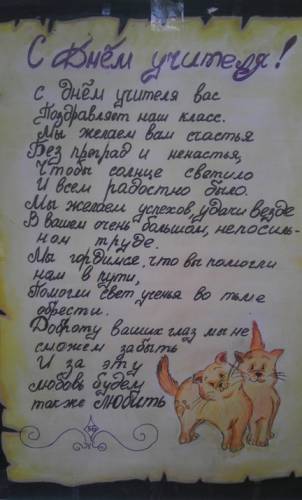 С Днём учителя!
С днём учителя вас
Поздравляет наш класс.
Мы желаем вам счастья
Без преград и ненастья,
Чтобы солнце светило
И всем радостно было.
Мы желаем успехов, удачи везде
В вашем очень большом, непосиль-
ном труде.
Мы гордимся, что вы помогли
нам в пути,
Помогли свет ученья во тьме
обрести.
Доброту ваших глаз мы не
сможем забыть
И за эту
любовь будем
также любить